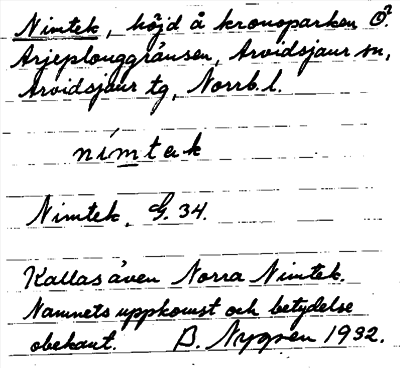 Nimtek, höjd å kronoparken Ö.
Arjeplouggränsen, Arvidsjaur sn,
Arvidsjaur tg, Norrb. l.
nímtek
Nimtek, G. 34.
Kallas även Norra Nimtek.
Namnets uppkomst och betydelse
obekant. B. Nygren 1932.